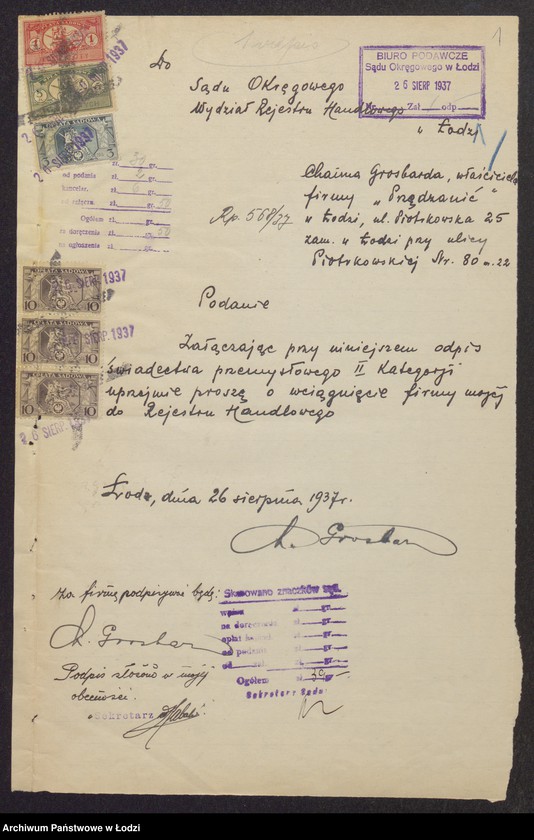 1
Do
Sądu Okręgowego
Wydział Rejestru Handlowego
w Łodzi
BIURO PODAWCZE
Sądu Okręgowego w Łodzi
26 SIERP 1937
Nr. Zał odp
Chaima Grosbarda, właściciela
firmy „Przędzanić"
w Łodzi, ul. Piotrkowska 25
zam. w Łodzi przy ulicy
Piotrkowskiej Nr. 80 m. 22
Rp. 568/37
od podania zł. gr.
kancelar. zł. 6 gr.
zł. gr. 50
Ogółem zł. gr.
za doręczenie zł. gr. 50
za ogłoszenie zł. gr.
Podanie
Załączając przy niniejszem odpis
świadectwa przemysłowego II Kategorji
uprzejmie proszę o wciągnięcie firmy mojej
do Rejestru Handlowego
Łodz, dnia 26 sierpnia 1937 r.
Ch. Grosbard
za firmę podpisywać będę:
Ch. Grosbard
Podpis złożono w mojej
obecności.
Sekretarz
Skasowano znaczków sąd.
wpisu zł. gr.
na doręczenie zł. gr.
opłat kancel. zł. gr.
od podania zł. gr.
od zał. zł. gr.
Ogółem zł. 39 gr.
Sekretarz Sądu:
1 OPŁATA SĄDOWA 1
5 5
OPŁATA SĄDOWA
3 3
26 SIERP. 1937
OPŁATA SĄDOWA
10 10
OPŁATA SĄDOWA
10 10
OPŁATA SĄDOWA
10 10
26 SIERP. 1937
Archiwum Państwowe w Łodzi